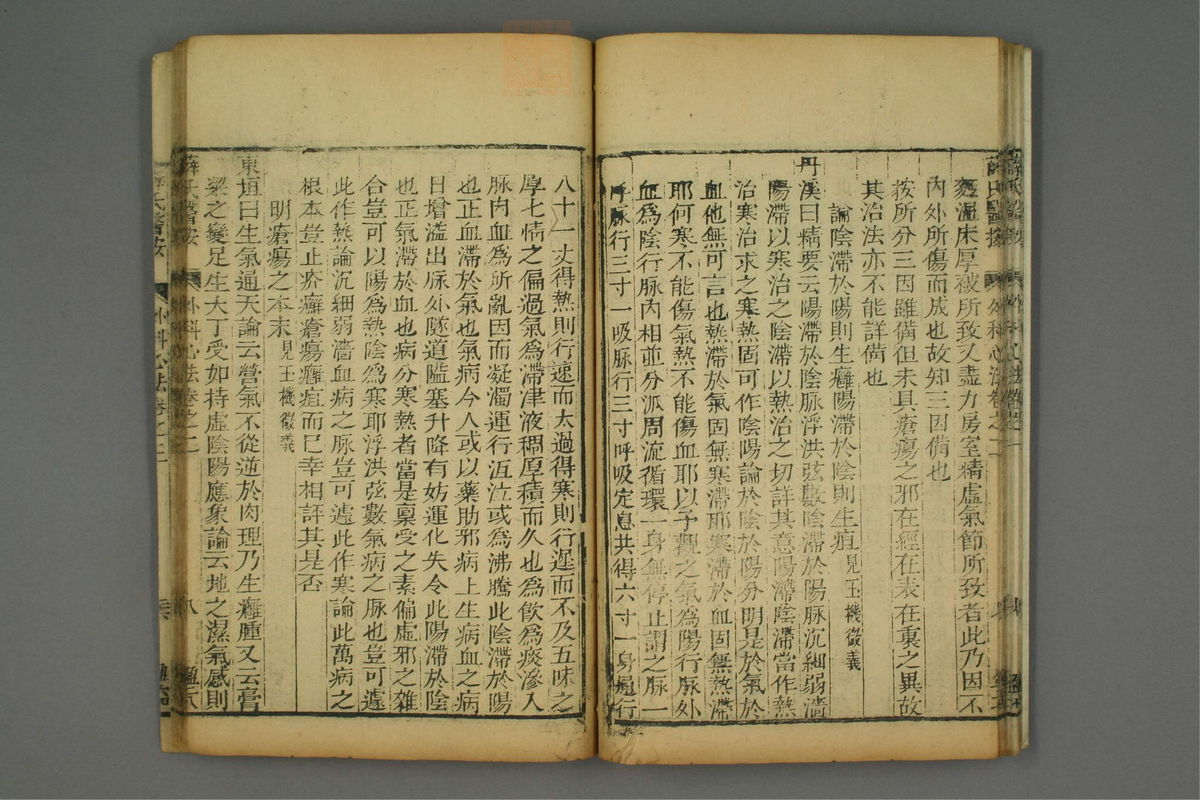 薛氏醫按
外科心法卷之二
衾溫床厚被所致又盡力房室精虛氣節所致者此乃因不
內外所傷而成也故知三因備也
按所分三因雖備但未具瘡瘍之邪在經在表在裏之異故
其治法亦不能詳備也
論陰滯於陽則生癰陽滯於陰則生疽見玉機微義
丹溪曰精要云陽滯於陰脉浮洪弦數陰滯於陽脉沉細弱濇
陽滯以寒治之陰滯以熱治之切詳其意陽滯陰滯當作熱
治寒治求之寒熱固可作陰陽論於陰於陽分明是於氣於
血他無可言也熱滯於氣固無寒滯耶寒滯於血固無熱滯
耶何寒不能傷氣熱不能傷血耶以予觀之氣為陽行脉外
血爲陰行脉內相並分派周流循環一身無停止謂之脉一
呼脉行三寸一吸脉行三寸呼吸定息共得六寸一身通行
八十一丈得熱則行速而太過得寒則行遲而不及五味之
厚七情之偏過氣爲滯津液稠厚積而久也爲飲爲痰滲入
脉內血爲所亂因而凝濁運行沍泣或爲沸騰此陰滯於陽
也正血滯於氣也氣病今人或以藥助邪病上生病血之病
日增溢出脉外隧道隘塞升降有妨運化失令此陽滯於陰
也正氣滯於血也病分寒熱者當是稟受之素偏虛邪之雜
合豈可以陽爲熱陰爲寒耶浮洪弦數氣病之脉也豈可遽
此作熱論沉細弱濇血病之脉豈可遽此作寒論此萬病之
根本豈止疥癬瘡瘍癰疽而已幸相評其是否
明瘡瘍之本末見玉機微義
東垣曰生氣通天論云營氣不從逆於肉理乃生癰腫又云膏
粱之變足生大丁受如持虛陰陽應象論云地之濕氣感則
薛氏醫按
外科心法卷之二
八